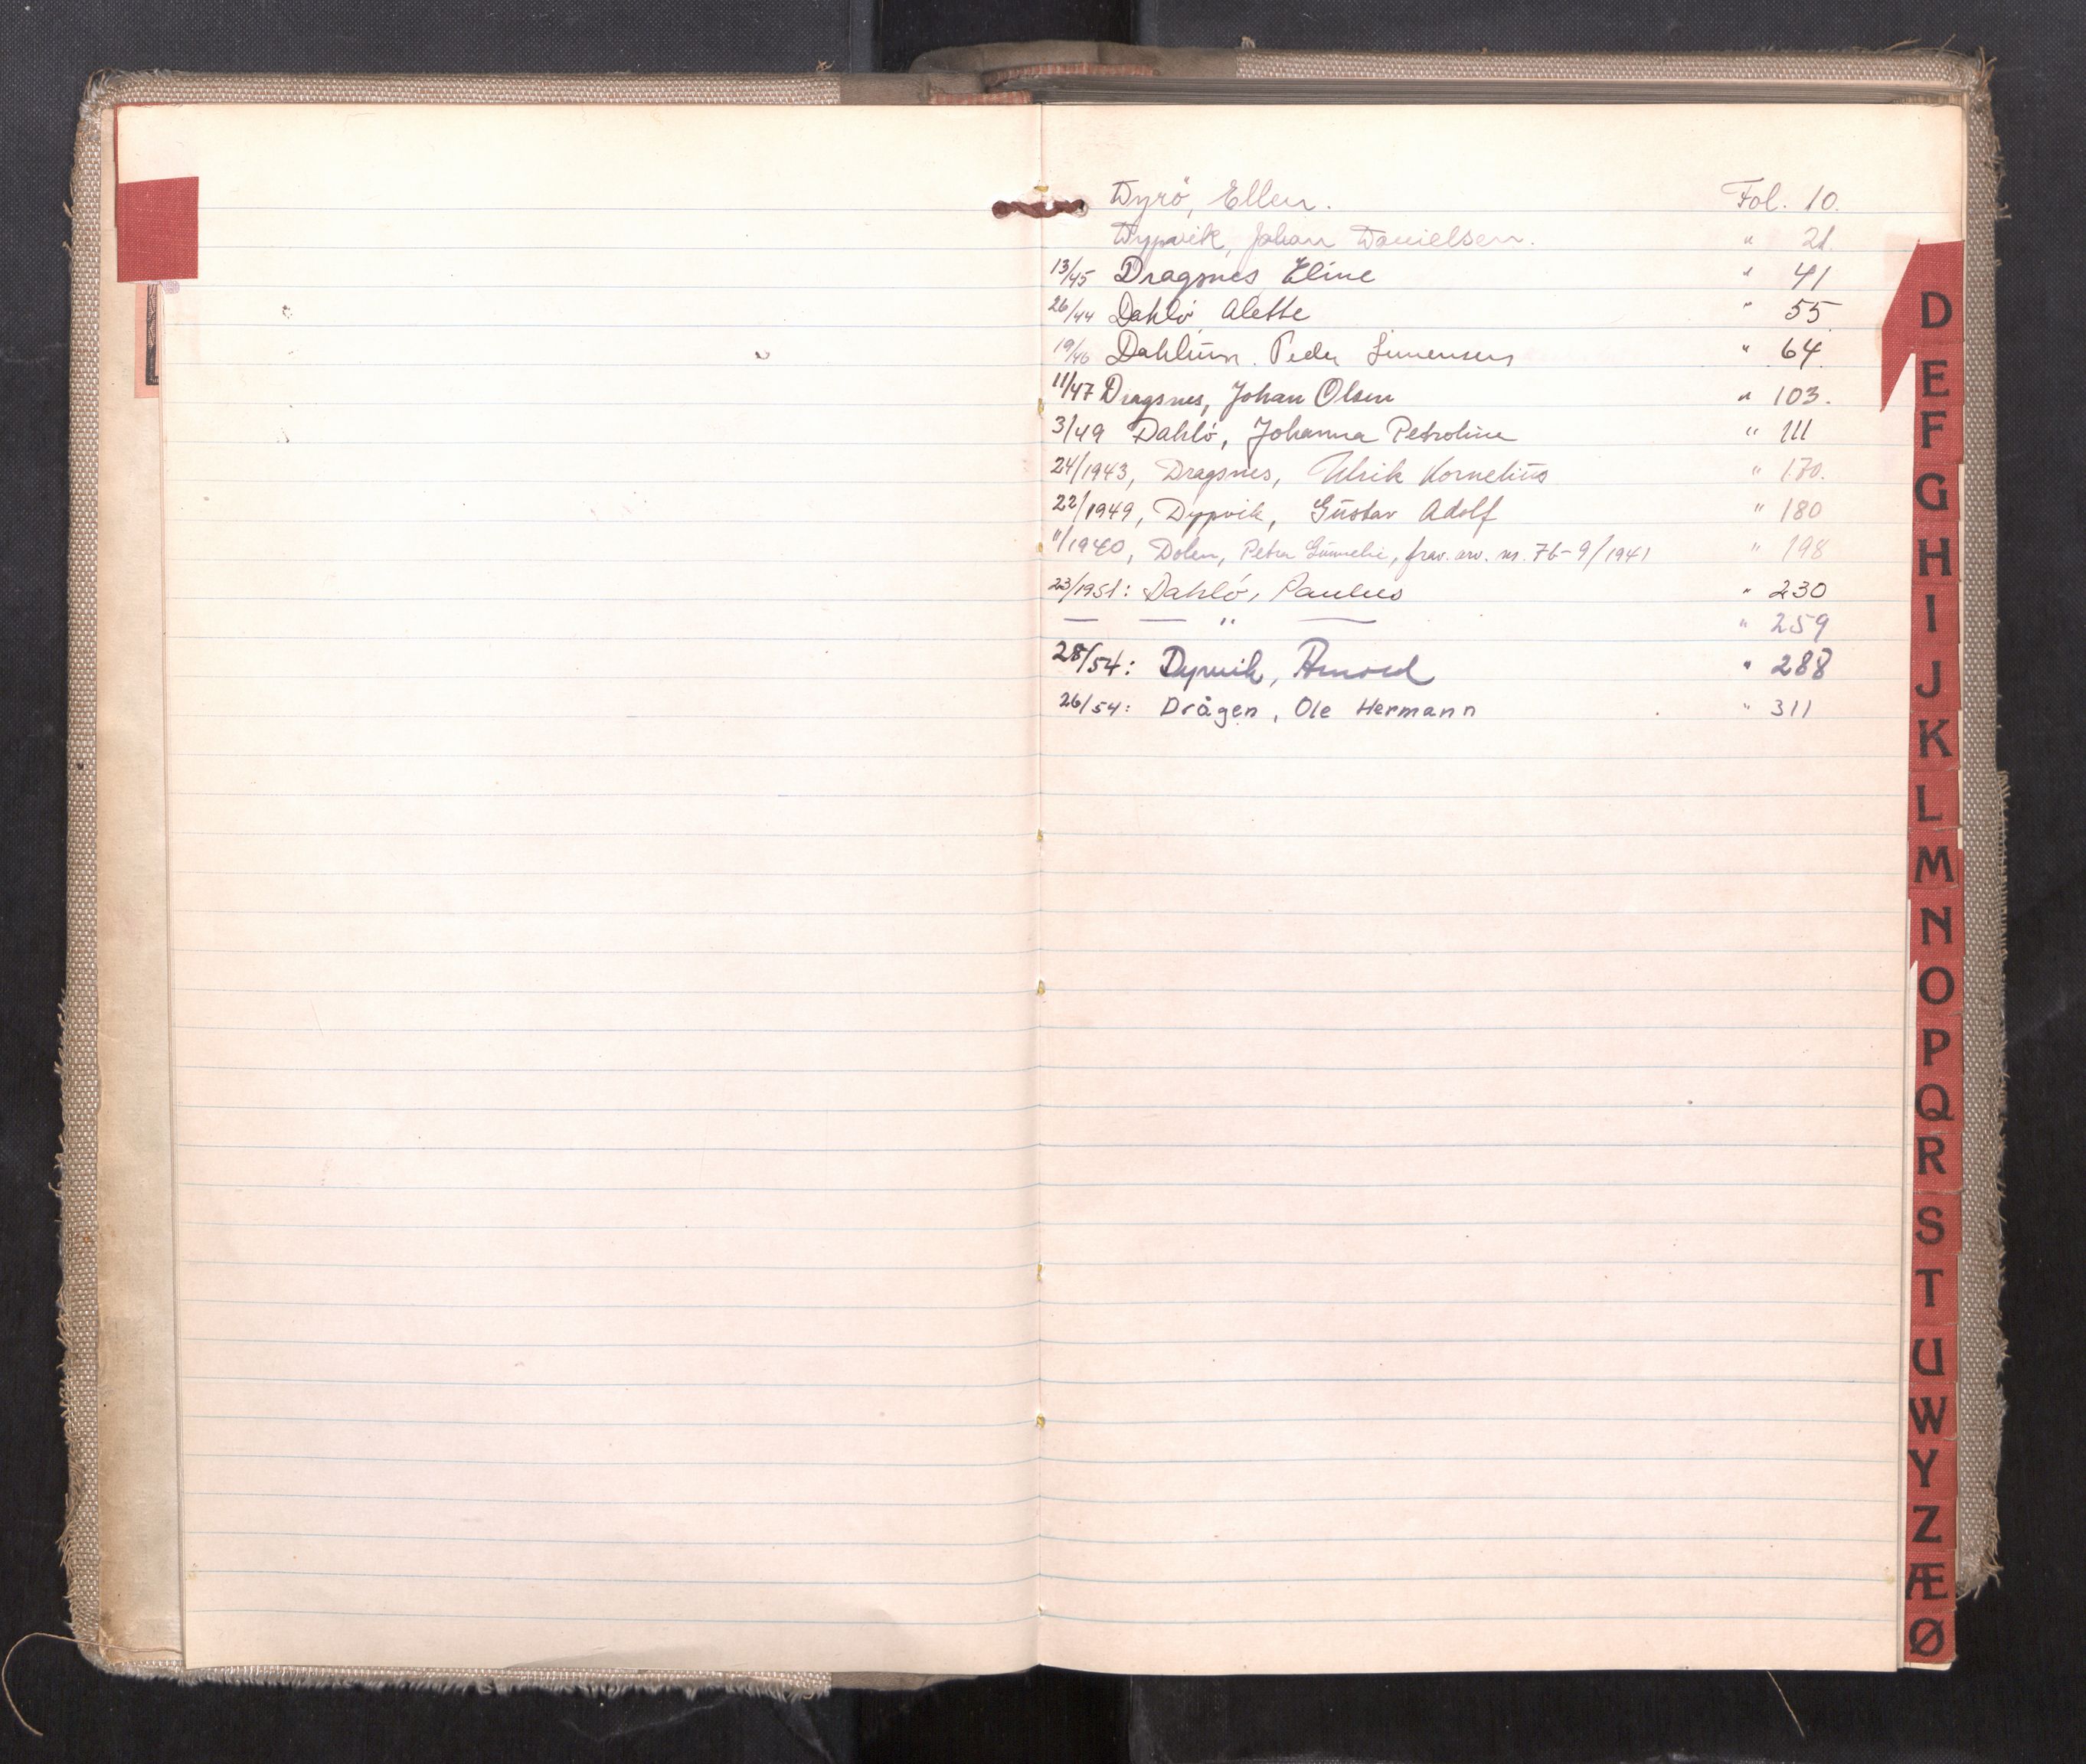 Dyrö, Ellen. Fol. 10.
Dypvik, Johan Danielsen. " 21.
13/45 Dragsnes Eline " 41
26/44 Dahlö Alette " 55
19/46 Dahlum. Peder Simensen " 64
11/47 Dragsnes, Johan Olsen " 103.
3/49 Dahlö, Johanna Petroline " 111
24/1943, Dragsnes, Ulrik Kornelius " 170.
22/1949, Dypvik, Gustav Adolf " 180
11/1940, Dolen, Petra, frav. arv. nr. 76-9/1941 " 198
23/1951: Dahlö, Paulus " 230
— — " — " 259
28/54: Dypvik, Arnold " 288
26/54: Drågen, Ole Hermann " 311
D
E
F
G
H
I
J
K
L
M
N
O
P
Q
R
S
T
U
W
Y
Z
Æ
Ø